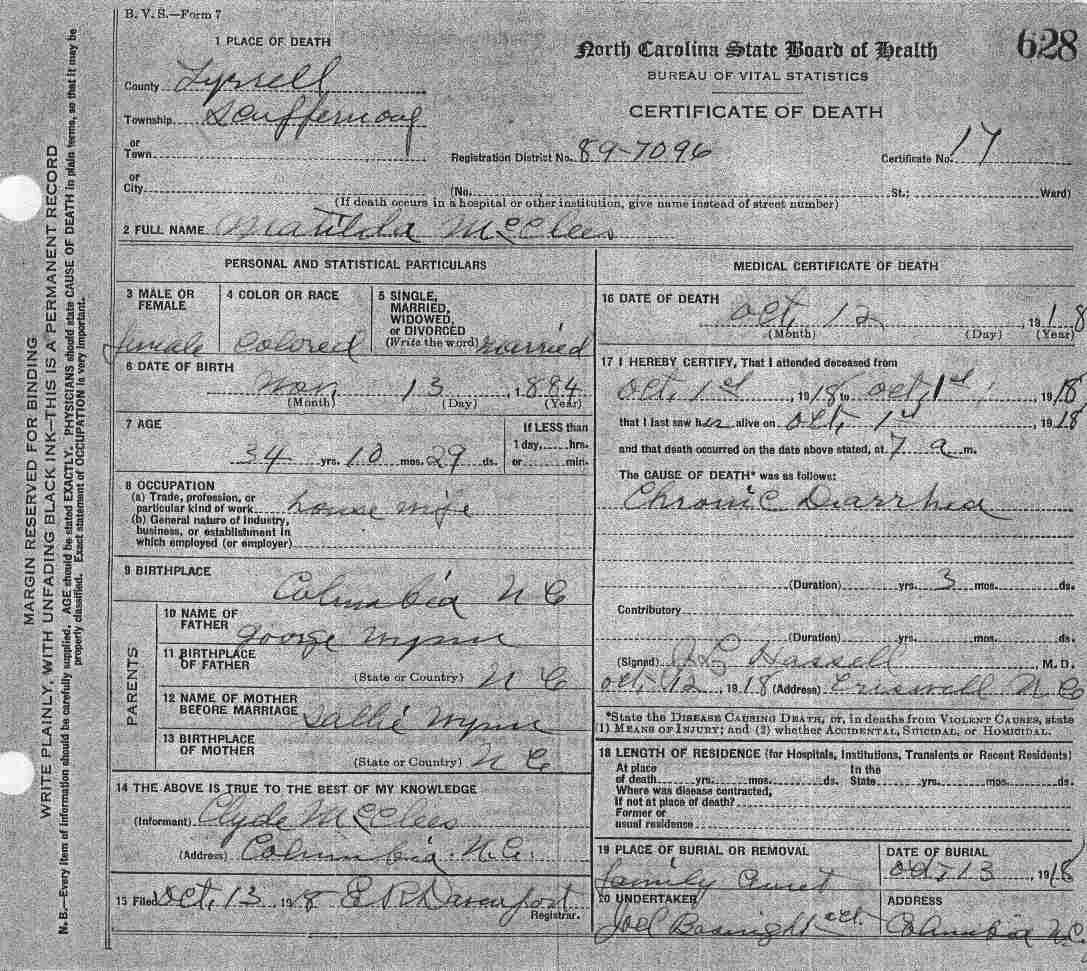 B. V. S.—Form 7
628
North Carolina State Board of Health
BUREAU OF VITAL STATISTICS
CERTIFICATE OF DEATH
1 PLACE OF DEATH
County Tyrrell
Township Scuffernong
or
Town
Registration District No. 89-7096
Certificate No. 17
or
City (No. St.; Ward)
(If death occurs in a hospital or other institution, give name instead of street number)
2 FULL NAME Matilda McClees
PERSONAL AND STATISTICAL PARTICULARS
3 MALE OR FEMALE female
4 COLOR OR RACE Colored
5 SINGLE, MARRIED, WIDOWED, or DIVORCED (Write the word) married
6 DATE OF BIRTH Nov, 13, 1884
(Month) (Day) (Year)
7 AGE 34 yrs. 10 mos. 29 ds.
If LESS than
1 day, hrs.
or min.
8 OCCUPATION
(a) Trade, profession, or
particular kind of work house wife
(b) General nature of industry,
business, or establishment in
which employed (or employer)
9 BIRTHPLACE Columbia N C
PARENTS
10 NAME OF FATHER George Wynn
11 BIRTHPLACE OF FATHER
(State or Country) N C
12 NAME OF MOTHER BEFORE MARRIAGE Sallie Wynn
13 BIRTHPLACE OF MOTHER
(State or Country) N C
14 THE ABOVE IS TRUE TO THE BEST OF MY KNOWLEDGE
(Informant) Clyde McClees
(Address) Columbia N.C.
15 Filed oct, 13 1918 E R Davenport
Registrar.
MEDICAL CERTIFICATE OF DEATH
16 DATE OF DEATH oct, 12, 1918
(Month) (Day) (Year)
17 I HEREBY CERTIFY, That I attended deceased from
oct, 1st, 1918 to oct, 1st, 1918
that I last saw her alive on oct, 1st 1918
and that death occurred on the date above stated, at 7 a m.
The CAUSE OF DEATH* was as follows:
Chronic Diarrhea
(Duration) yrs. 3 mos. ds.
Contributory
(Duration) yrs. mos. ds.
(Signed) Hassell, M. D.
oct, 12, 1918 (Address) Criswell N.C.
*State the DISEASE CAUSING DEATH, or, in deaths from VIOLENT CAUSES, state
(1) MEANS OF INJURY; and (2) whether ACCIDENTAL, SUICIDAL, or HOMICIDAL.
18 LENGTH OF RESIDENCE (for Hospitals, Institutions, Transients or Recent Residents)
At place of death yrs. mos. ds. In the State yrs. mos. ds.
Where was disease contracted,
If not at place of death?
Former or
usual residence
19 PLACE OF BURIAL OR REMOVAL
family
DATE OF BURIAL
oct, 13, 1918
20 UNDERTAKER
Joel Basnight
ADDRESS
Columbia N.C.
MARGIN RESERVED FOR BINDING
WRITE PLAINLY, WITH UNFADING BLACK INK—THIS IS A PERMANENT RECORD
N. B.—Every item of information should be carefully supplied. AGE should be stated EXACTLY. PHYSICIANS should state CAUSE OF DEATH in plain terms, so that it may be
properly classified. Exact statement of OCCUPATION is very important.